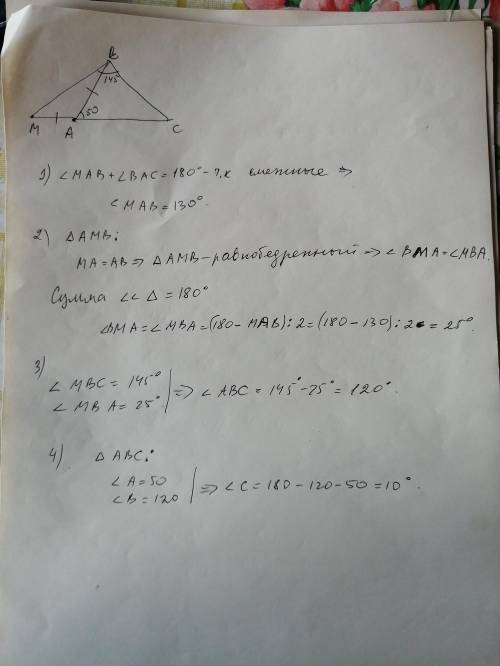 B
145
50
M
A
C
1) ∠MAB + ∠BAC = 180° - т.к смежные ⇒
∠MAB = 130°.
2) △AMB:
MA = AB ⇒ △AMB - равнобедренный ⇒ ∠BMA = ∠MBA.
Сумма ∠∠ △ = 180°
∠BMA = ∠MBA = (180 - MAB) : 2 = (180 - 130) : 2 = 25°
3)
∠MBC = 145° | ⇒ ∠ABC = 145° - 25° = 120°.
∠MBA = 25°
4) △ABC:
∠A = 50 | ⇒ ∠C = 180 - 120 - 50 = 10°.
∠B = 120